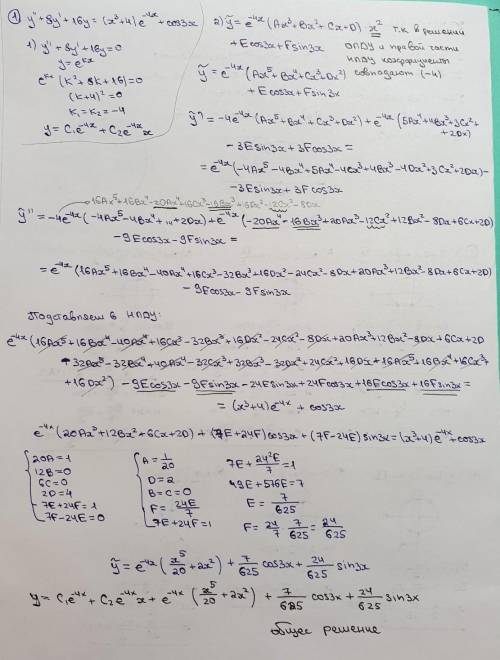 ① y''+8y'+16y=(x³+4)e^{-4x}+cos3x
1) y''+8y'+16y=0
y=e^{kx}
e^{kx}(k²+8k+16)=0
(k+4)²=0
k₁=k₂=-4
y=C₁e^{-4x}+C₂e^{-4x}x
2) ỹ=e^{-4x}(Ax³+Bx²+Cx+D)x² т.к. в решении
+Ecos3x+Fsin3x ОЛДУ и правой части
НЛДУ коэффициенты
совпадают (-4)
ỹ=e^{-4x}(Ax⁵+Bx⁴+Cx³+Dx²)
+Ecos3x+Fsin3x
ỹ'=-4e^{-4x}(Ax⁵+Bx⁴+Cx³+Dx²)+e^{-4x}(5Ax⁴+4Bx³+3Cx²+
+2Dx)
-3Esin3x+3Fcos3x=
=e^{-4x}(-4Ax⁵-4Bx⁴+5Ax⁴-4Cx³+4Bx³-4Dx²+3Cx²+2Dx)-
-3Esin3x+3Fcos3x
16Ax⁵+16Bx⁴-20Ax⁴+16Cx³-16Bx³+16Dx²-12Cx²-8Dx
ỹ''=-4e^{-4x}(-4Ax⁵-4Bx⁴+...+2Dx)+e^{-4x}(-20Ax⁴-16Bx³+20Ax³-12Cx²+12Bx²-8Dx+6Cx+2D)
-9Ecos3x-9Fsin3x=
=e^{-4x}(16Ax⁵+16Bx⁴-40Ax⁴+16Cx³-32Bx³+16Dx²-24Cx²-8Dx+20Ax³+12Bx²-8Dx+6Cx+2D)
-9Ecos3x-9Fsin3x
Подставляем в НЛДУ:
e^{-4x}(16Ax⁵+16Bx⁴-40Ax⁴+16Cx³-32Bx³+16Dx²-24Cx²-8Dx+20Ax³+12Bx²-8Dx+6Cx+2D
-32Ax⁵-32Bx⁴+40Ax⁴-32Cx³+32Bx³-32Dx²+24Cx²+16Dx+16Ax⁵+16Bx⁴+16Cx³+
+16Dx²)-9Ecos3x-9Fsin3x-24Esin3x+24Fcos3x+16Ecos3x+16Fsin3x=
=(x³+4)e^{-4x}+cos3x
e^{-4x}(20Ax³+12Bx²+6Cx+2D)+(7E+24F)cos3x+(7F-24E)sin3x=(x³+4)e^{-4x}+cos3x
{20A=1
12B=0
6C=0
2D=4
7E+24F=1
7F-24E=0
{A=1/20
D=2
B=C=0
F=24E/7
7E+24F=1
7E+24²E/7=1
49E+576E=7
E=7/625
F=24/7·7/625=24/625
ỹ=e^{-4x}(x⁵/20+2x²)+7/625 cos3x+24/625 sin3x
y=C₁e^{-4x}+C₂e^{-4x}x+e^{-4x}(x⁵/20+2x²)+7/625 cos3x+24/625 sin3x
общее решение